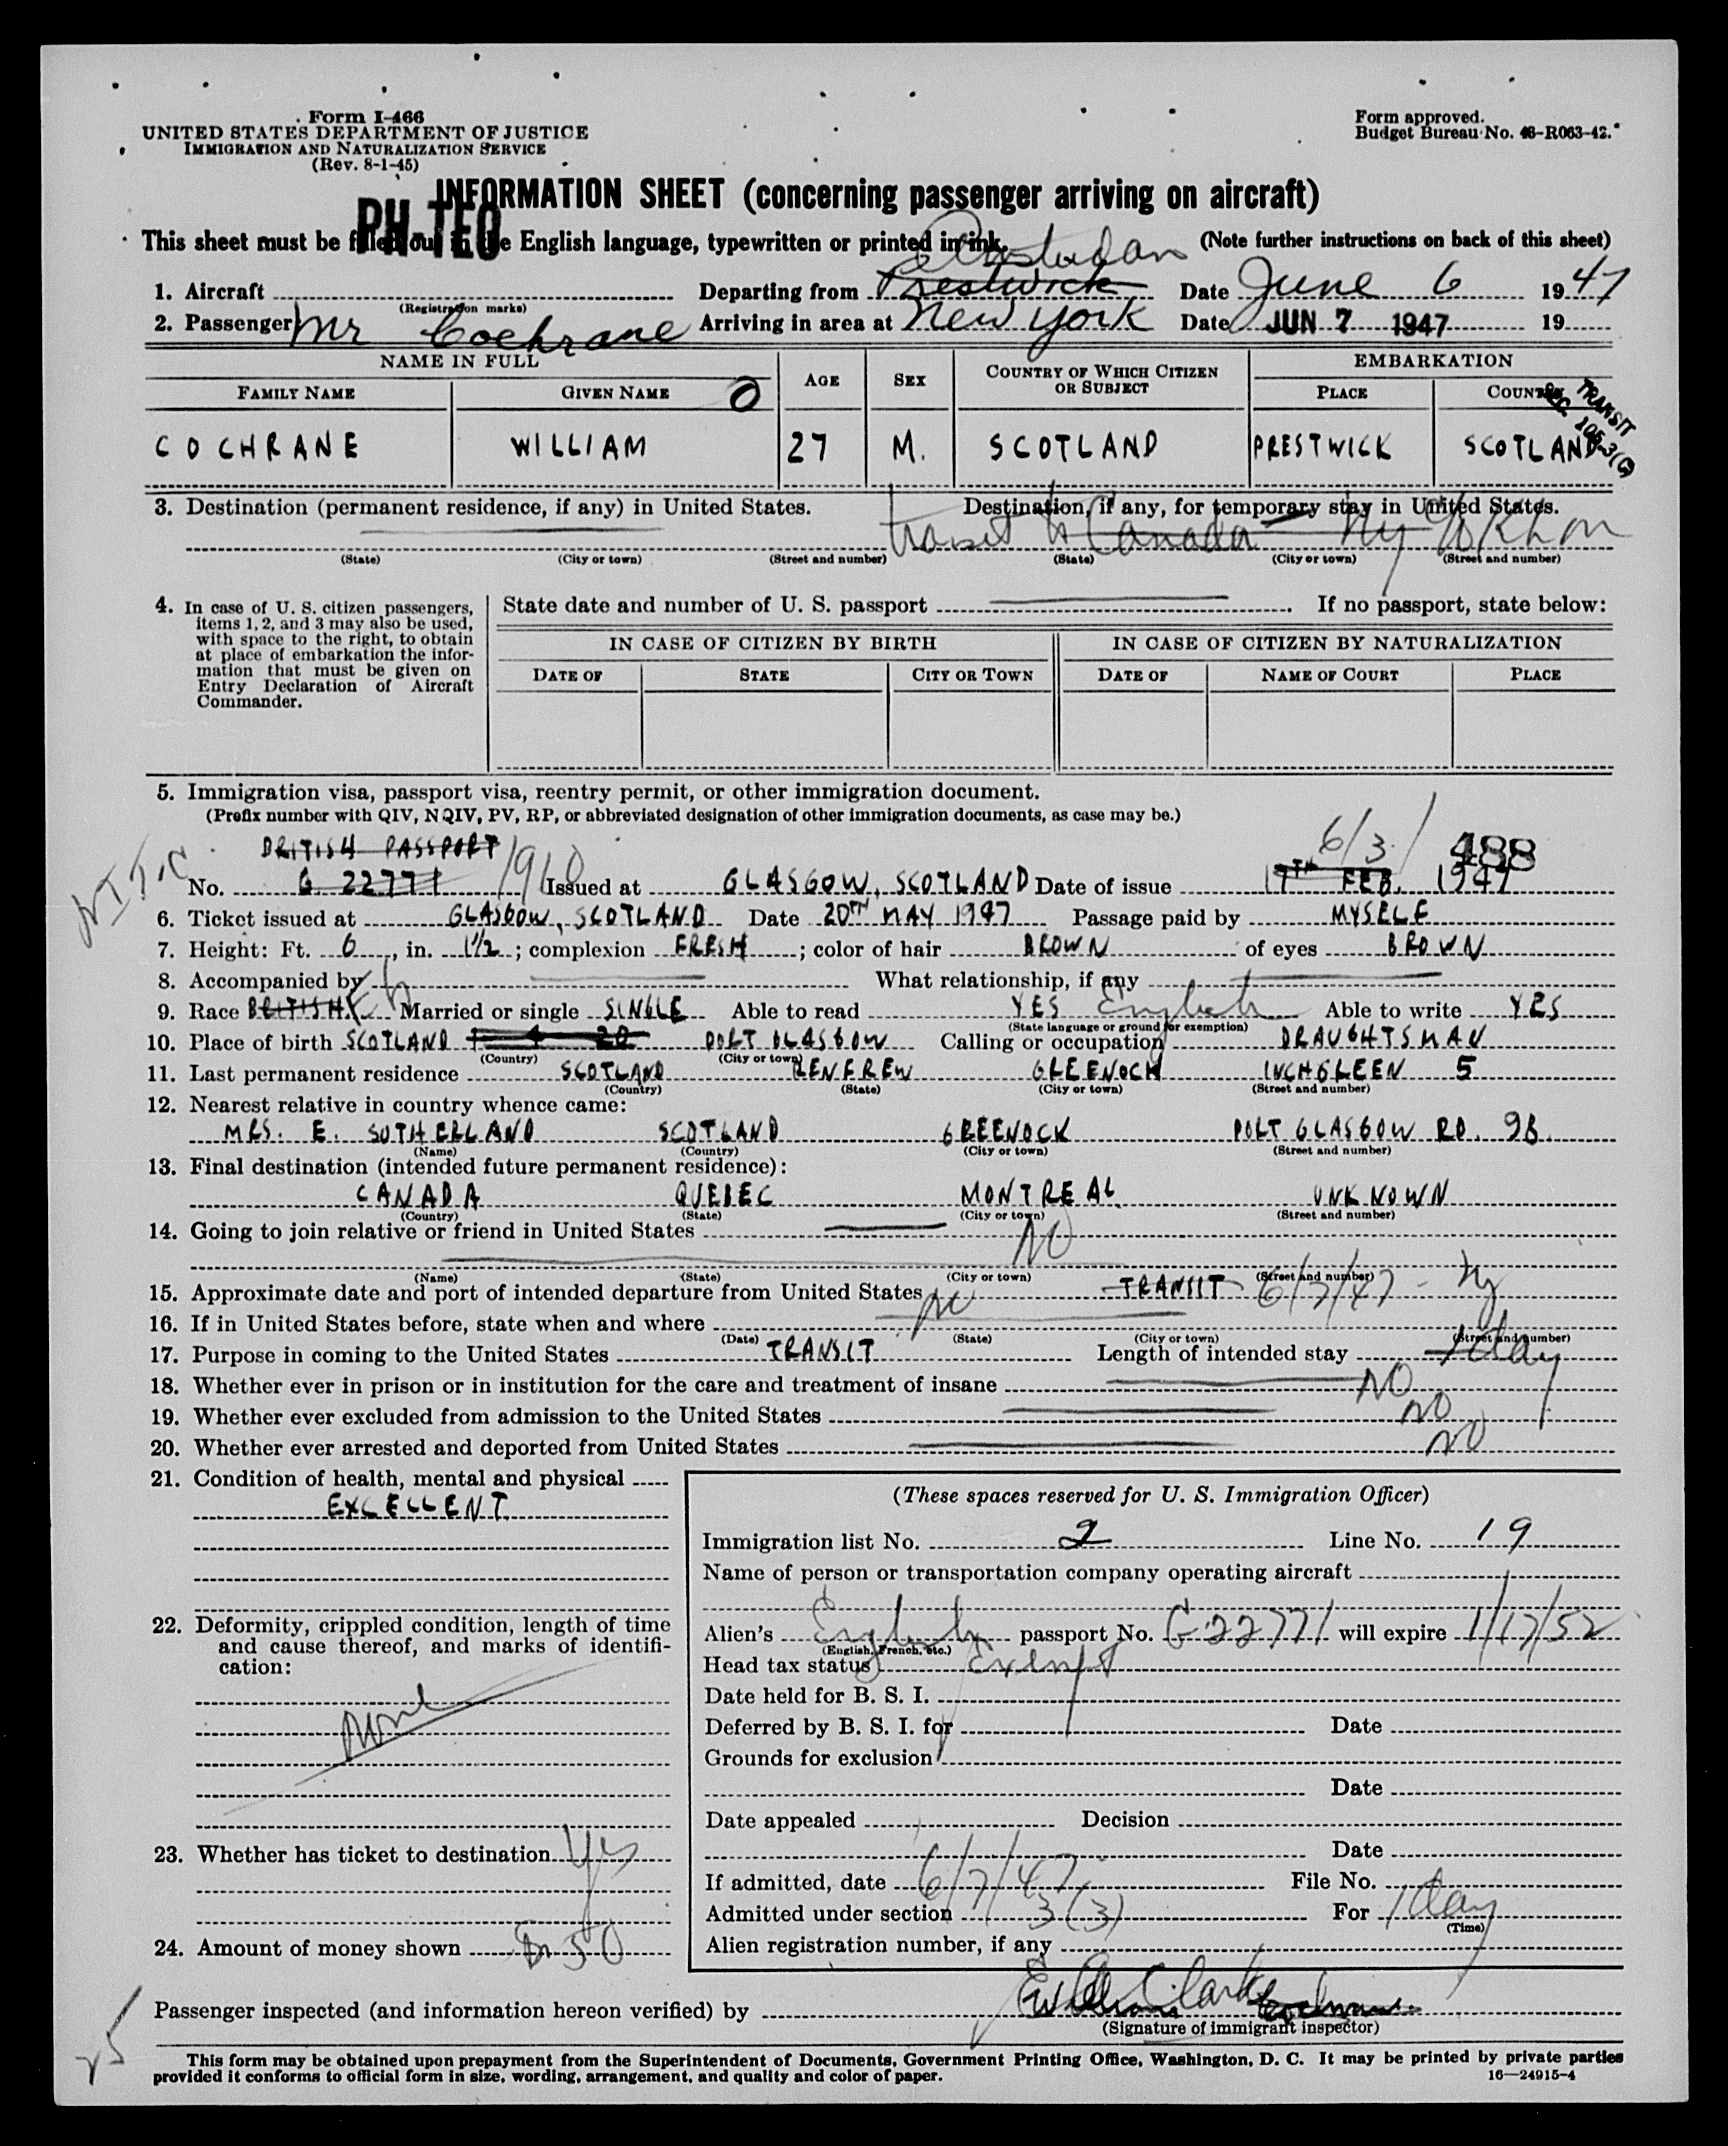 Form I-466
UNITED STATES DEPARTMENT OF JUSTICE
IMMIGRATION AND NATURALIZATION SERVICE
(Rev. 8-1-45)
Form approved.
Budget Bureau No. 43-R063-42.
INFORMATION SHEET (concerning passenger arriving on aircraft)
PH-TEO
This sheet must be filled out in the English language, typewritten or printed in ink. (Note further instructions on back of this sheet)
Amsterdam
1. Aircraft Departing from Prestwick Date June 6 1947
(Registration marks)
2. Passenger Mr Cochrane Arriving in area at New York Date JUN 7 1947 19
NAME IN FULL AGE SEX COUNTRY OF WHICH CITIZEN OR SUBJECT EMBARKATION
FAMILY NAME GIVEN NAME O PLACE COUNTRY
TRANSIT
SEC. 105-3(G)
COCHRANE WILLIAM 27 M. SCOTLAND PRESTWICK SCOTLAND
3. Destination (permanent residence, if any) in United States. Destination, if any, for temporary stay in United States.
transit to Canada Ny % KLM
(State) (City or town) (Street and number) (State) (City or town) (Street and number)
4. In case of U. S. citizen passengers, items 1, 2, and 3 may also be used, with space to the right, to obtain at place of embarkation the information that must be given on Entry Declaration of Aircraft Commander.
State date and number of U. S. passport . If no passport, state below:
IN CASE OF CITIZEN BY BIRTH IN CASE OF CITIZEN BY NATURALIZATION
DATE OF STATE CITY OR TOWN DATE OF NAME OF COURT PLACE
5. Immigration visa, passport visa, reentry permit, or other immigration document.
(Prefix number with QIV, NQIV, PV, RP, or abbreviated designation of other immigration documents, as case may be.)
BRITISH PASSPORT 6/3/ 488
No. G 22771 1910 Issued at GLASGOW, SCOTLAND Date of issue 17TH FEB. 1947
6. Ticket issued at GLASGOW, SCOTLAND Date 20TH MAY 1947 Passage paid by MYSELF
7. Height: Ft. 6, in. 1½; complexion FRESH; color of hair BROWN of eyes BROWN
8. Accompanied by What relationship, if any
9. Race BRITISH Married or single SINGLE Able to read YES English Able to write YES
(State language or ground for exemption)
10. Place of birth SCOTLAND PORT GLASGOW Calling or occupation DRAUGHTSMAN
(Country) (City or town)
11. Last permanent residence SCOTLAND RENFREW GREENOCK INCHGREEN 5
(Country) (State) (City or town) (Street and number)
12. Nearest relative in country whence came:
MRS. E. SUTHERLAND SCOTLAND GREENOCK PORT GLASGOW RD. 98
(Name) (Country) (City or town) (Street and number)
13. Final destination (intended future permanent residence):
CANADA QUEBEC MONTREAL UNKNOWN
(Country) (State) (City or town) (Street and number)
14. Going to join relative or friend in United States NO
(Name) (State) (City or town) (Street and number)
15. Approximate date and port of intended departure from United States TRANSIT 6/7/47 - Ny
16. If in United States before, state when and where NO
(Date) (State) (City or town) (Street and number)
17. Purpose in coming to the United States TRANSIT Length of intended stay 1 day
18. Whether ever in prison or in institution for the care and treatment of insane NO
19. Whether ever excluded from admission to the United States NO
20. Whether ever arrested and deported from United States NO
21. Condition of health, mental and physical
EXCELLENT
22. Deformity, crippled condition, length of time and cause thereof, and marks of identification:
None
23. Whether has ticket to destination Yes
24. Amount of money shown 50
(These spaces reserved for U. S. Immigration Officer)
Immigration list No. 2 Line No. 19
Name of person or transportation company operating aircraft
Alien's English passport No. G22771 will expire 1/17/52
(English, French, etc.)
Head tax status Exempt
Date held for B. S. I.
Deferred by B. S. I. for Date
Grounds for exclusion
Date
Date appealed Decision
Date
If admitted, date 6/7/47 File No.
Admitted under section 3(3) For 1 day
(Time)
Alien registration number, if any
Passenger inspected (and information hereon verified) by
(Signature of immigrant inspector)
This form may be obtained upon prepayment from the Superintendent of Documents, Government Printing Office, Washington, D. C. It may be printed by private parties
provided it conforms to official form in size, wording, arrangement, and quality and color of paper. 16—24915-4